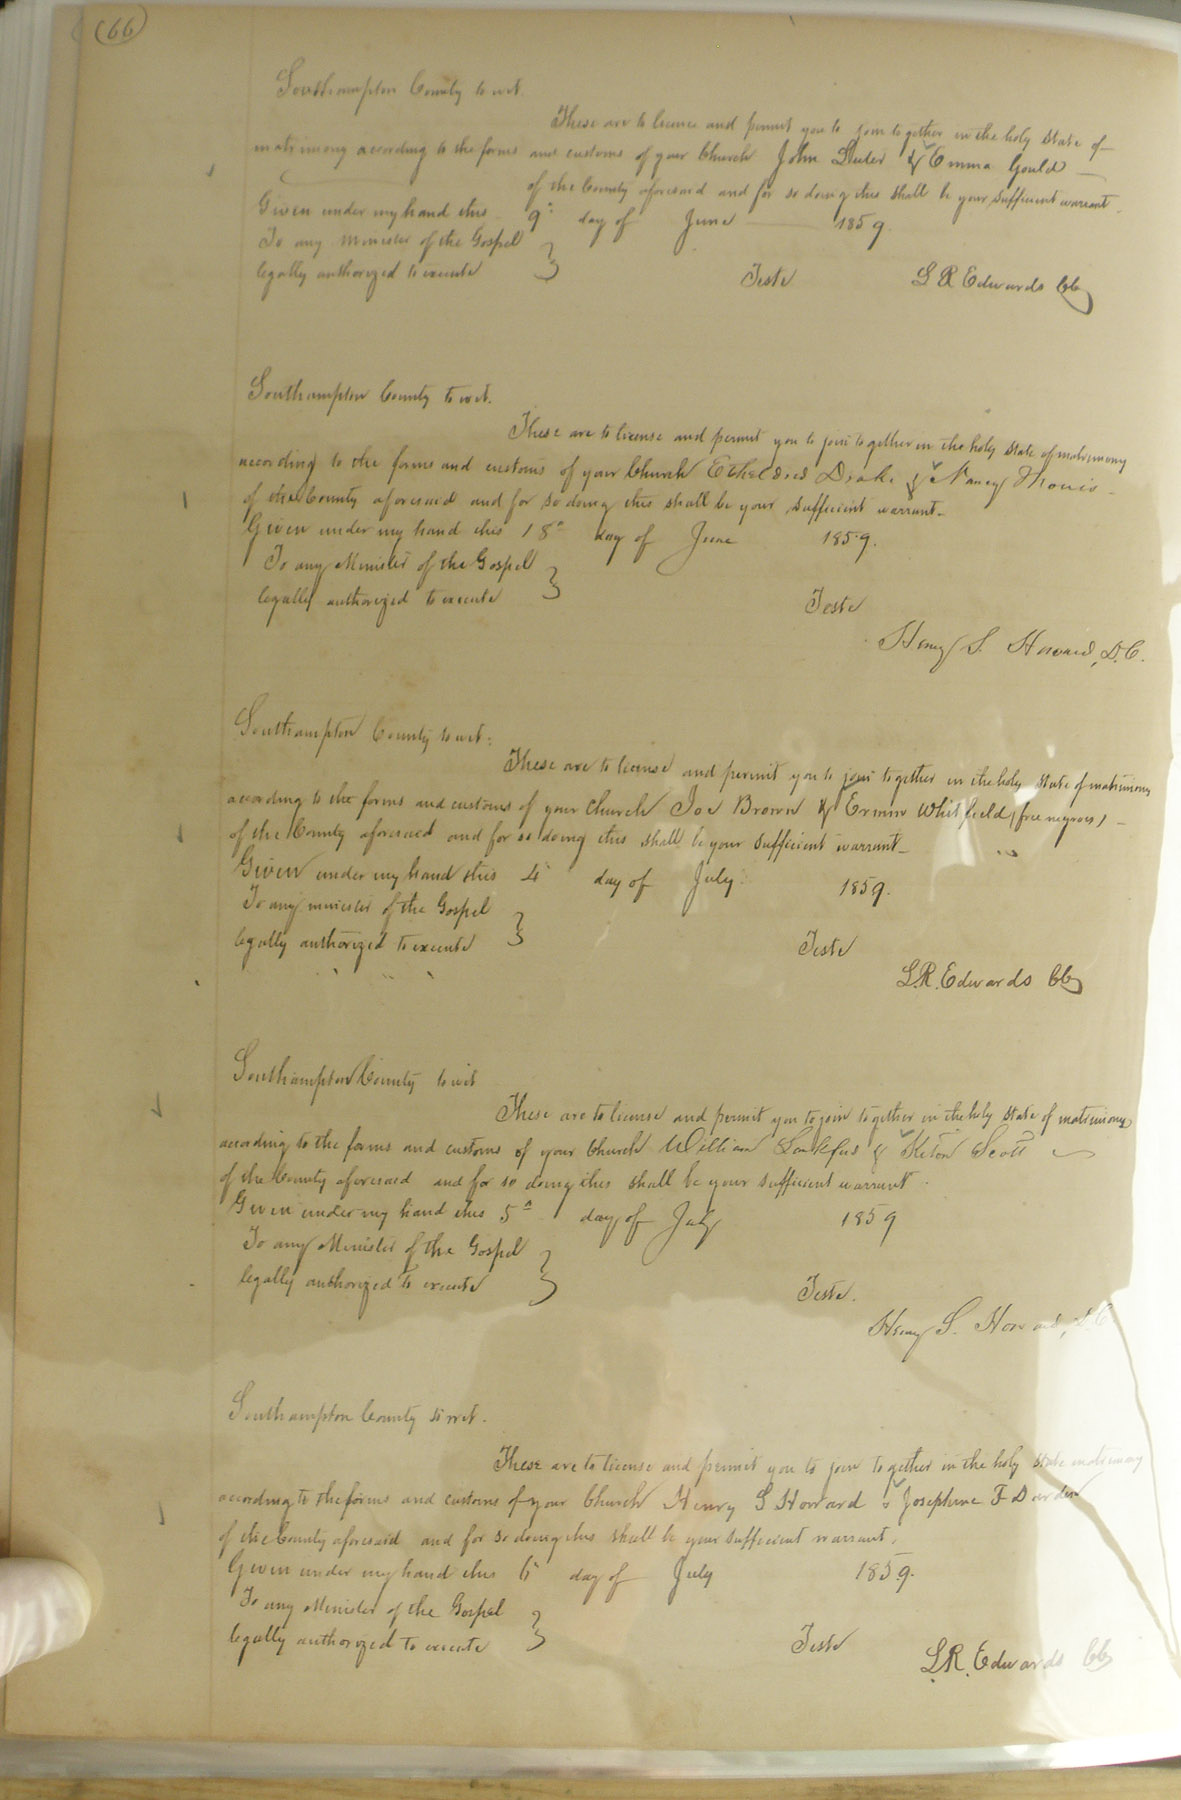 (66)
Southampton County to wit
These are to licence and permit you to join together in the holy State of
matrimony according to the forms and customs of your Church John & Emma Gould
of the County aforesaid and for so doing this shall be your Sufficient warrant
Given under my hand this 9th day of June 1859.
To any minister of the Gospel
legally authorized to execute
Teste L R Edwards CC
Southampton County to wit.
These are to license and permit you to join together in the holy State of matrimony
according to the forms and customs of your Church Etheldred Drake & Nancy
of the County aforesaid and for so doing this shall be your sufficient warrant
Given under my hand this 18th day of June 1859.
To any Minister of the Gospel
legally authorized to execute
Teste
Henry S. Howard, D.C.
Southampton County to wit:
These are to license and permit you to join together in the holy State of matrimony
according to the forms and customs of your Church Joe Brown & Whitfield (free negroes)
of the County aforesaid and for so doing this shall be your sufficient warrant
Given under my hand this 4th day of July 1859.
To any minister of the Gospel
legally authorized to execute
Teste
L.R. Edwards CC
Southampton County to wit
These are to license and permit you to join together in the holy State of matrimony
according to the forms and customs of your Church William & Scott
of the County aforesaid and for so doing this shall be your sufficient warrant
Given under my hand this 5th day of July 1859
To any Minister of the Gospel
legally authorized to execute
Teste.
Henry S. Howard, D.C.
Southampton County to wit.
These are to license and permit you to join together in the holy State matrimony
according to the forms and customs of your Church Henry S Howard & Josephine F Darden
of the County aforesaid and for so doing this shall be your sufficient warrant.
Given under my hand this 6th day of July 1859.
To any Minister of the Gospel
legally authorized to execute
Teste
L.R. Edwards CC